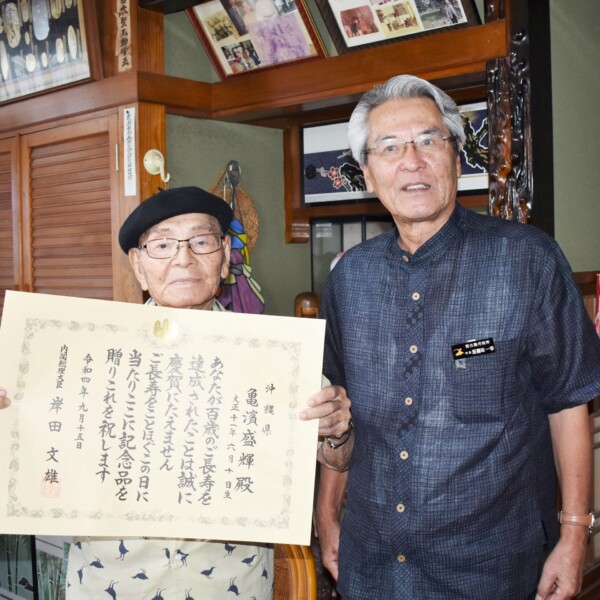 沖縄県
亀濱盛輝殿
大正十一年六月十日生
あなたが百歳のご長寿を
達成されたことは誠に
慶賀にたえません
ご長寿をことほぐこの日に
当たりここに記念品を
贈りこれを祝します
令和四年九月十五日
内閣総理大臣 岸田文雄
宮古島市役所